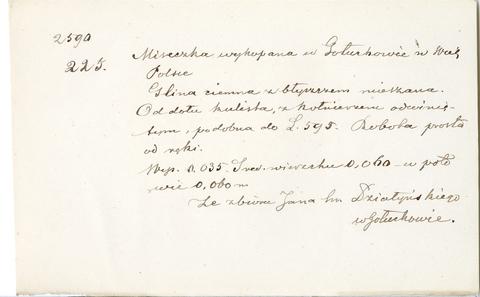 2590
225. Miseczka wykopana w Gołuchowie w Wiel.
Polsce
Glina ciemna z błyszczem mieszana.
Od dołu kulista, z kołnierzem odwinię-
tym, podobna do L. 595. Robota prosta
od ręki.
Wys. 0.035. Śred. wierzchu 0,060 - w poło
wie 0,060 m
Ze zbioru Jana hr. Działyńskiego
w Gołuchowie.